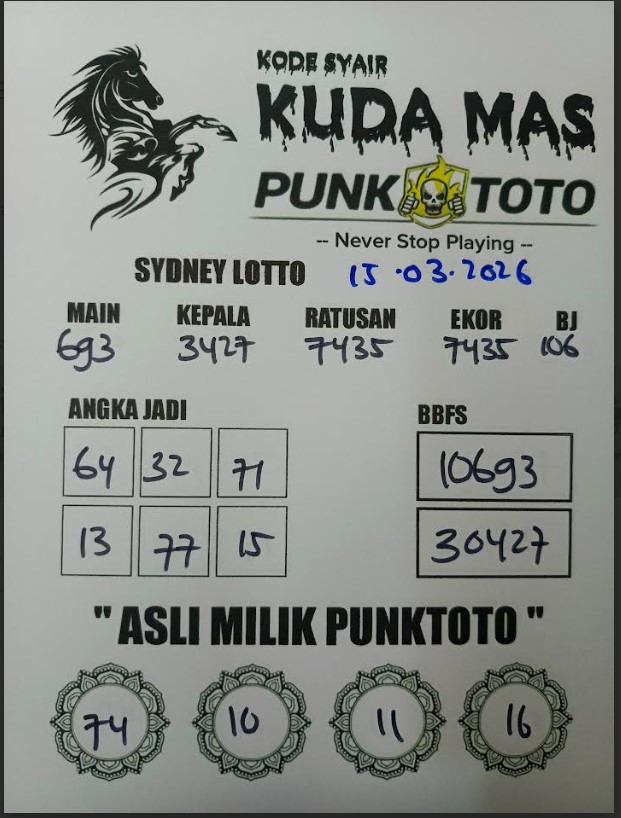 KODE SYAIR
KUDA MAS
PUNK TOTO
-- Never Stop Playing --
SYDNEY LOTTO 15.03.2026
MAIN KEPALA RATUSAN EKOR BJ
693 3427 7435 7435 106
ANGKA JADI BBFS
64 32 71 10693
13 77 15 30427
" ASLI MILIK PUNKTOTO "
74 10 11 16